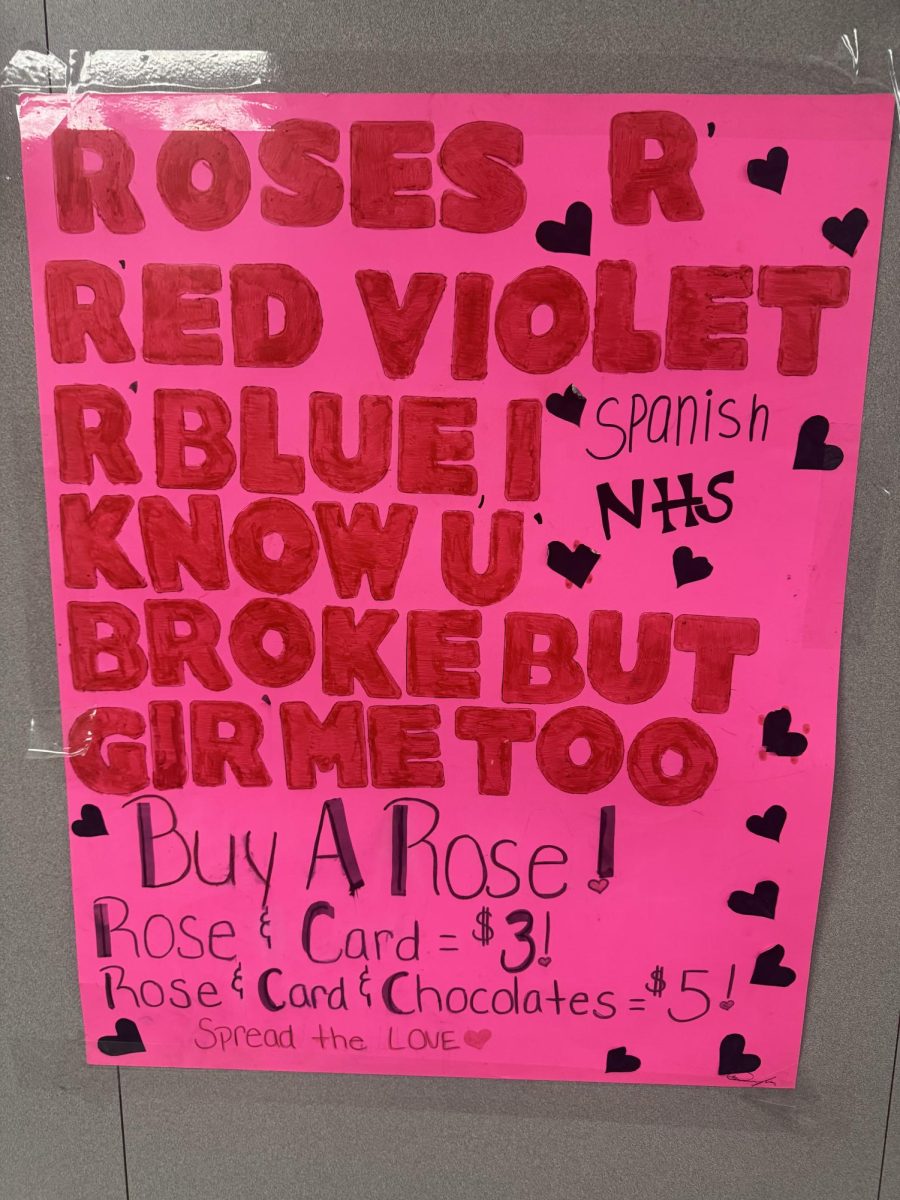 ROSES R'
R'ED VIOLET
R' BLUE I
Spanish
NHS
KNOW 'U'
BROKE BUT
GIR' ME TOO
Buy A Rose!
Rose & Card = $3!
Rose & Card & Chocolates = $5!
Spread the LOVE